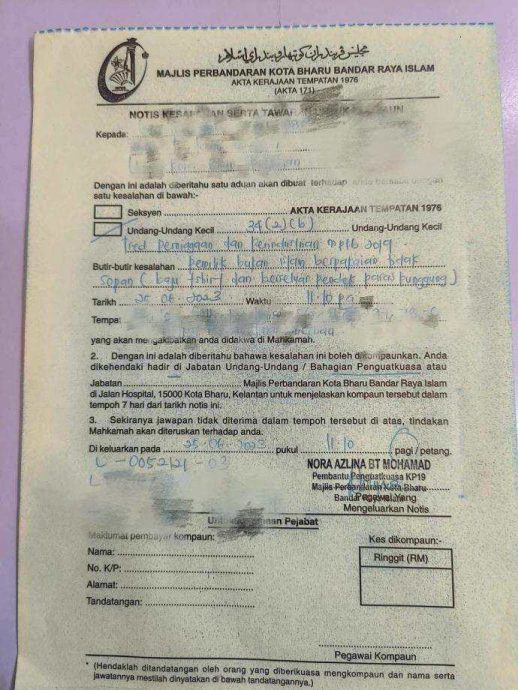 مجليس ڤربندارن كوت بهارو بندر راي اسلام
MAJLIS PERBANDARAN KOTA BHARU BANDAR RAYA ISLAM
AKTA KERAJAAN TEMPATAN 1976
(AKTA 171)
NOTIS KESALAHAN SERTA TAWARAN
Kepada:
Dengan ini adalah diberitahu satu aduan akan dibuat terhadap anda
satu kesalahan di bawah:-
Seksyen AKTA KERAJAAN TEMPATAN 1976
Undang-Undang Kecil 34(2)(b) Undang-Undang Kecil
Tred Perniagaan dan Perindustrian MPKB 2019
Butir-butir kesalahan Pemilik bukan Islam berpakaian tidak
sopan (baju tshirt dan berseluar pendek paras punggung)
Tarikh 25.06.2023 Waktu 11.10 pg
Tempat
yang akan mengakibatkan anda didakwa di Mahkamah.
2. Dengan ini adalah diberitahu bahawa kesalahan ini boleh dikompaunkan. Anda
dikehendaki hadir di Jabatan Undang-Undang / Bahagian Penguatkuasa atau
Jabatan Majlis Perbandaran Kota Bharu Bandar Raya Islam
di Jalan Hospital, 15000 Kota Bharu, Kelantan untuk menjelaskan kompaun tersebut dalam
tempoh 7 hari dari tarikh notis ini.
3. Sekiranya jawapan tidak diterima dalam tempoh tersebut di atas, tindakan
Mahkamah akan diteruskan terhadap anda.
Di keluarkan pada 25.06.2023 pukul 11.10 pagi / petang.
L-0052121-03
NORA AZLINA BT MOHAMAD
Pembantu Penguatkuasa KP19
Majlis Perbandaran Kota Bharu
Bandar
Pegawai Yang
Mengeluarkan Notis
Pejabat
Maklumat pembayar kompaun:
Kes dikompaun:-
Nama:
Ringgit (RM)
No. K/P:
Alamat:
Tandatangan:
Pegawai Kompaun
* (Hendaklah ditandatangan oleh orang yang diberikuasa mengkompaun dan nama serta
jawatannya mestilah dinyatakan di bawah tandatangannya.)